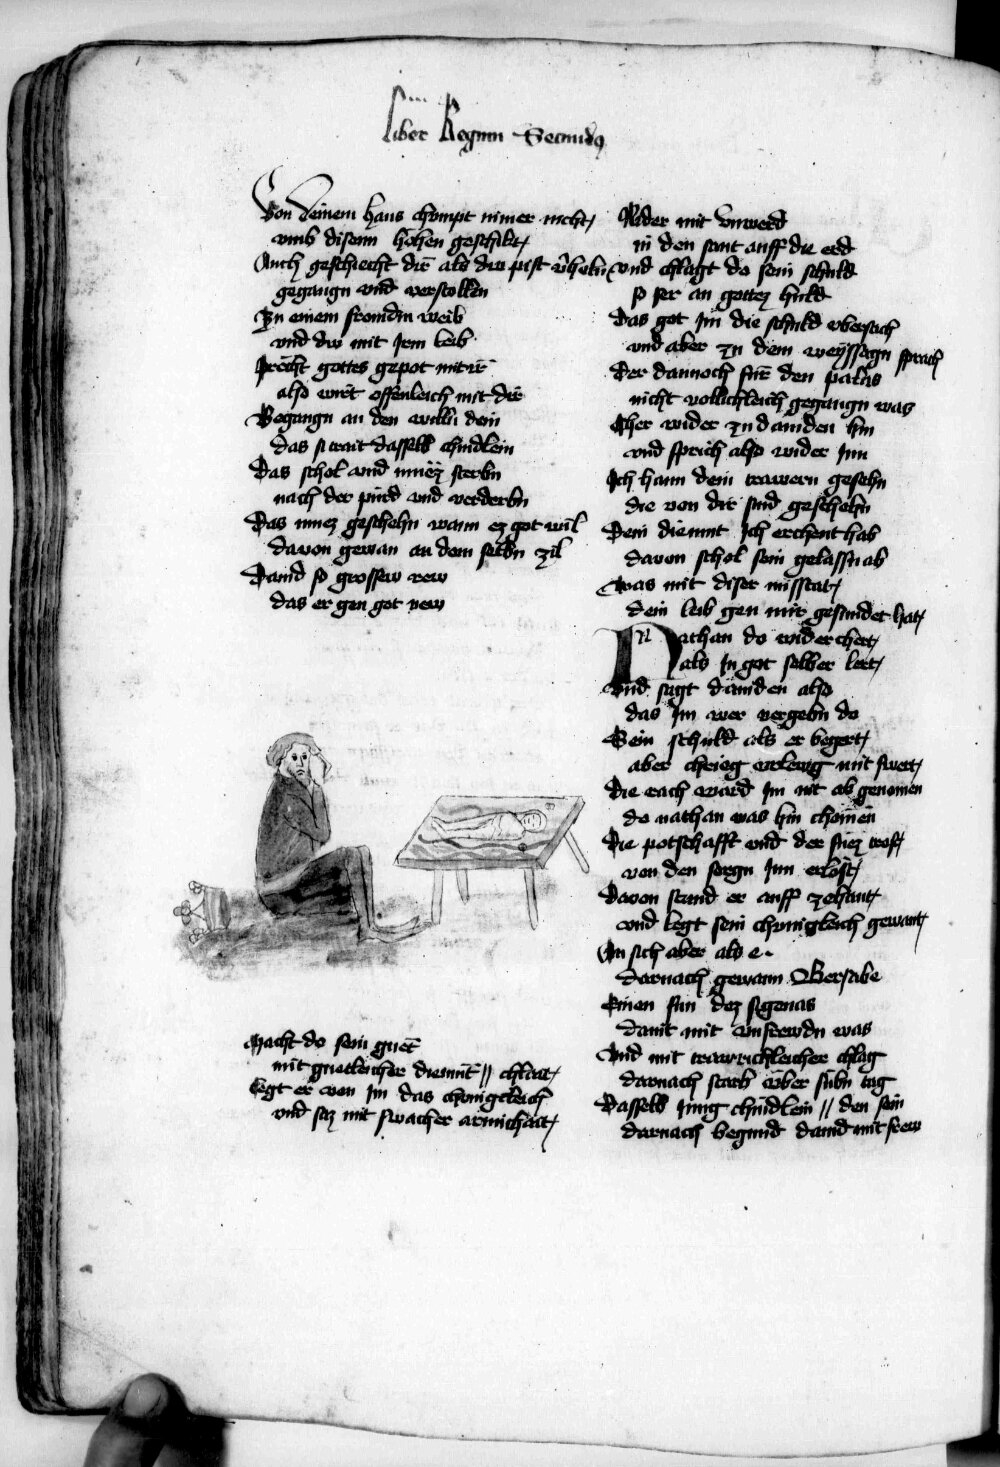 Liber Regum Secundus
Von deinem haus chumpt nimer nicht
vmb disem hohen geschikt
Auch geschiecht dir als dw pist v̈heln
gegangn vnd verstolln
Zu einem fromdm weib
vnd dw mit Irm leib
Precht gottes gepot mit ir
also wirt offenleich mit dir
Begangn an den willn dein
das si trait dasselb chindlein
Das schol vnd muez sterbn
nach der pürd vnd verderbn
Das muez geschehn wann ez got wil
dauon gewan an dem selbn zil
Dauid so grossew rew
das er gen got new
Macht do sein guet
mit guetleicher diemut // chlait
Legt er von Im das chonigcleich
vnd saz mit swacher armichait
Nider mit vnwerd
in den sant auff die erd
vnd chlagt do sein schuld
so ser an gottez huld
Das got Im die schuld vbersach
vnd aber zu dem weyssagn sprach
Der dannoch für den palas
nicht vollichleich gegangn was
Cher wider zu dauiden hin
vnd sprich also wider Inn
Ich hann dein trawern gesehn
die von dir sind geschehn
Dein diemut Ich erchent hab
dauon schol sein gelassn ab
Was mit diser missetat
dein leib gen mir gesundet hat
Nathan do widerchert
als In got selber lert
Vnd sagt dauiden also
das Im wer vergebn do
Sein schuld als er begert
aber chrieg vrlewg mit swert
Die rach ward Im nit ab genomen
do nathan was hin chomen
Die potschafft vnd der suez trost
von den sorgn Inn erlost
Dauon stund er auff zehant
vnd legt sein chunigleich gewant
An sich aber als e
Darnach gewann Bersabe
Einen sun dez sigenas
dauit mit vnfrewdn was
Vnd mit trawrichleicher chlag
darnach starb über sibn tag
Dasselb Jung chindlein // den sein
darnach begund dauid mit frew